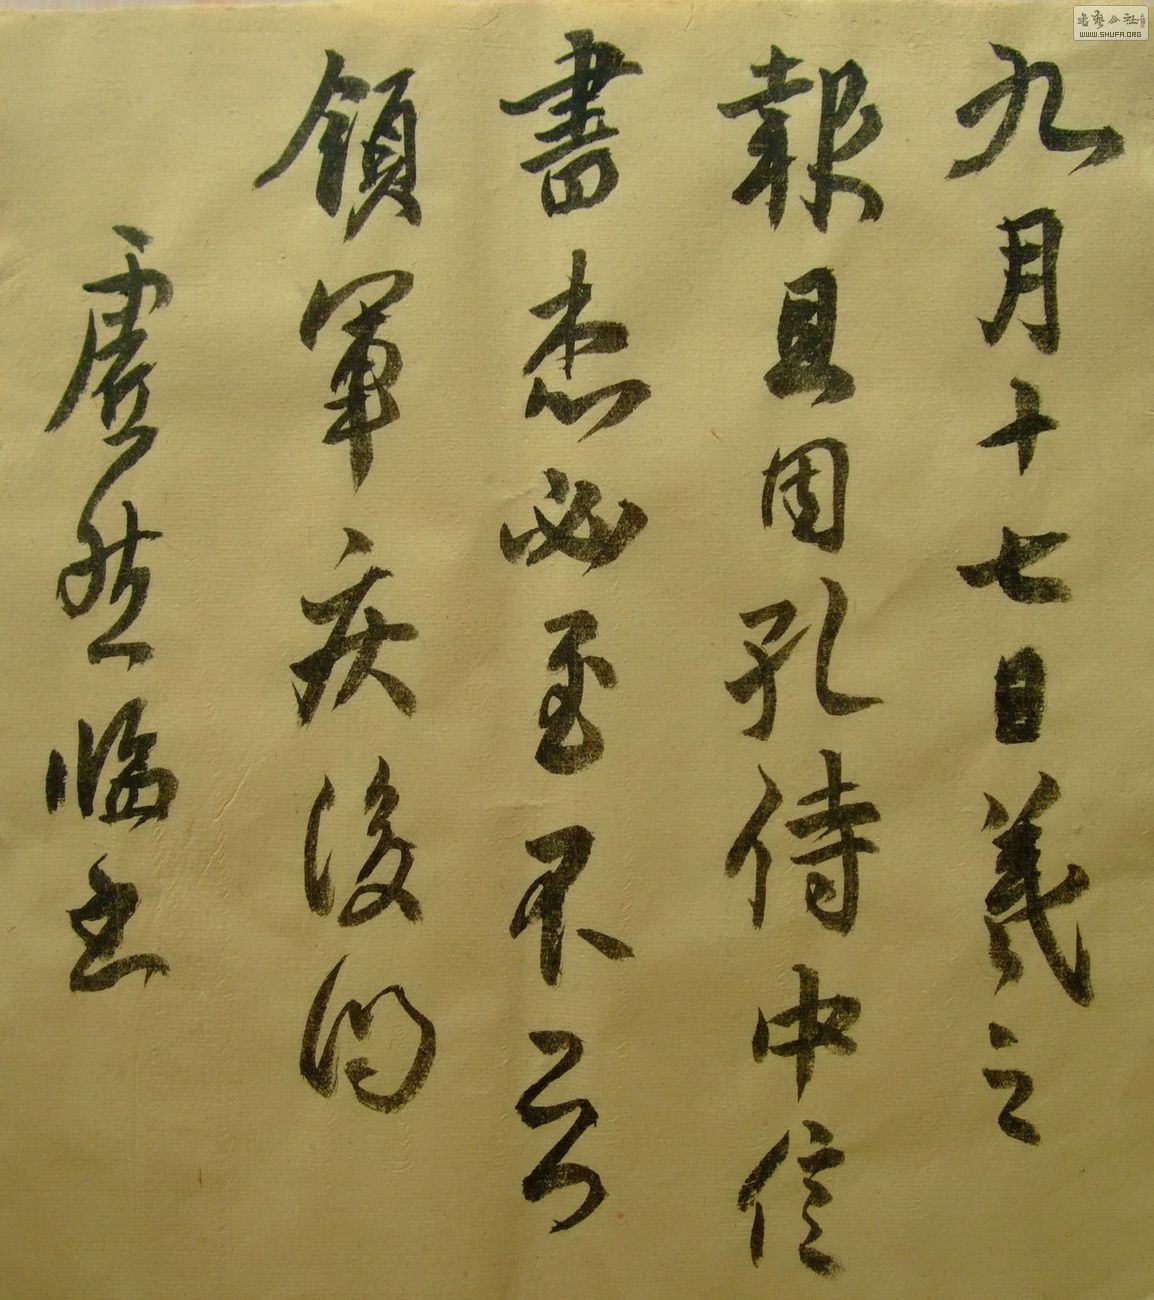 九月十七日羲之
報且因孔侍中信
書想必至不知
領軍疾後問
虚然临书
WWW.SHUFA.ORG